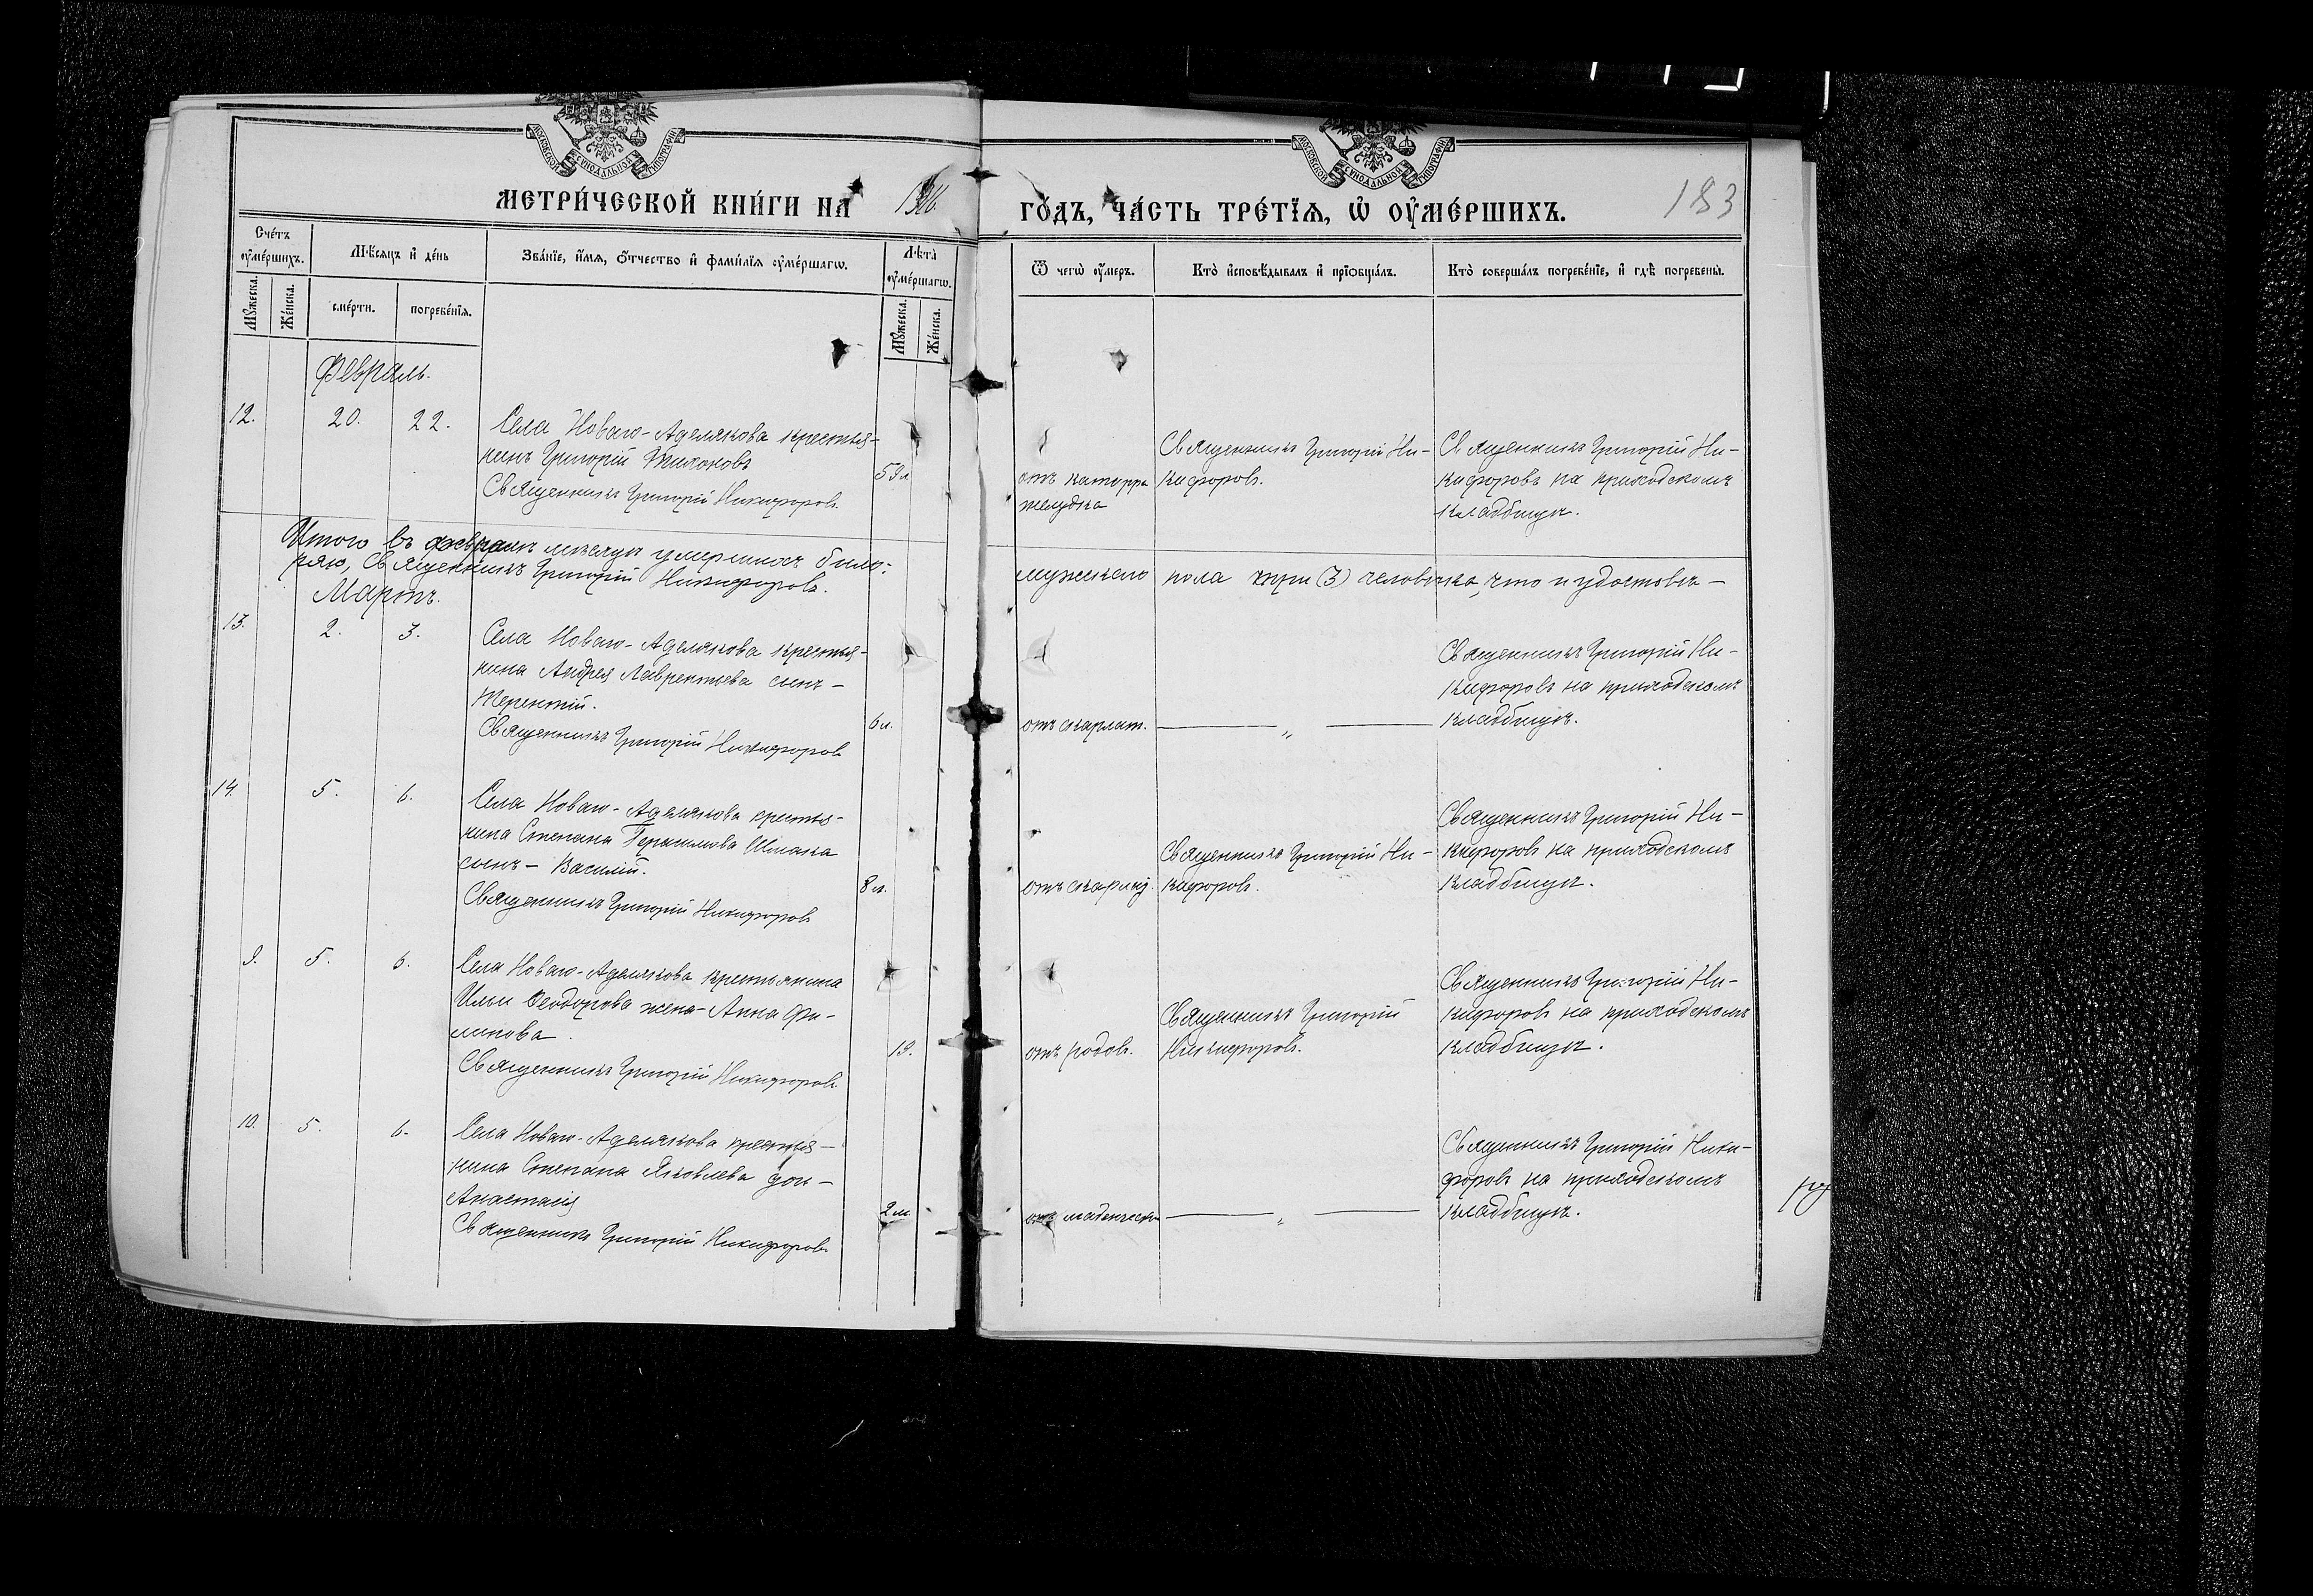 МОСКОВСКОЙ СѴНОДАЛЬНОЙ ТИПОГРАФІИ
МОСКОВСКОЙ СѴНОДАЛЬНОЙ ТИПОГРАФІИ
МЕТРИ́ЧЕСКОЙ КНИ́ГИ НА
ГО́ДЪ, ЧА́СТЬ ТРЕ́ТЇѦ, Ѡ҆ ОУ҆МЕ́РШИХЪ.
183
Сче́тъ оу҆ме́ршихъ.
Мꙋ́жеска.
Же́нска.
Мѣ́сяцъ и҆ де́нь
сме́рти.
погребе́нїя.
Зва́нїе, и҆́мя, ѻ҆́тчество и҆ фами́лїя оу҆ме́ршагѡ.
Лѣ́та оу҆ме́ршагѡ.
Мꙋ́жеска.
Же́нска.
Ѿ чегѡ̀ оу҆́меръ.
Кто̀ и҆сповѣ́дывалъ и҆ прїѡбща́лъ.
Кто̀ соверша́лъ погребе́нїе, и҆ гдѣ̀ погребены̀.
Февраль.
12.
20.
22.
Села Новаго-Аделякова крестья-
нинъ Григорій Тихоновъ
Священникъ Григорій Никифоровъ.
59 л.
отъ катарра
желудка
Священникъ Григорій Ни-
кифоровъ.
Священникъ Григорій Ни-
кифоровъ на приходскомъ
кладбищѣ.
Итого въ февралѣ мѣсяцѣ умершихъ было:
мужскаго пола три (3) человѣка, что и удостовѣ-
ряю, Священникъ Григорій Никифоровъ.
Мартъ.
13.
2.
3.
Села Новаго-Аделякова крестья-
нина Андрея Лаврентьева сынъ-
Терентій.
Священникъ Григорій Никифоровъ
6 л.
отъ скарлат.
"
Священникъ Григорій Ни-
кифоровъ на приходскомъ
кладбищѣ.
14.
5.
6.
Села Новаго-Аделякова крестья-
нина Степана Герасимова
сынъ- Василій.
Священникъ Григорій Никифоровъ
8 л.
Священникъ Григорій Ни-
кифоровъ.
Священникъ Григорій Ни-
кифоровъ на приходскомъ
кладбищѣ.
9.
5.
6.
Села Новаго-Аделякова крестьянина
Ильи Ѳеодорова жена- Анна Фи-
липова.
Священникъ Григорій Никифоровъ.
19.
отъ родовъ.
Священникъ Григорій
Никифоровъ.
Священникъ Григорій Ни-
кифоровъ на приходскомъ
кладбищѣ.
10.
5.
6.
Села Новаго-Аделякова крестья-
нина Степана Яковлева доч-
Анастасія
Священникъ Григорій Никифоровъ
2 м
отъ младенческ.
"
Священникъ Григорій Ники-
форовъ на приходскомъ
кладбищѣ.